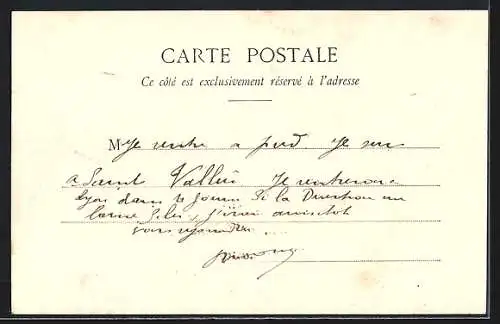 CARTE POSTALE
Ce côté est exclusivement réservé à l'adresse
M Je rentre a pied Je suis
a Saint Vallier Je rentrerai a
Lyon dans 2 jours Si la Direction
Si les, j'irai aussitot
vous rejoindre